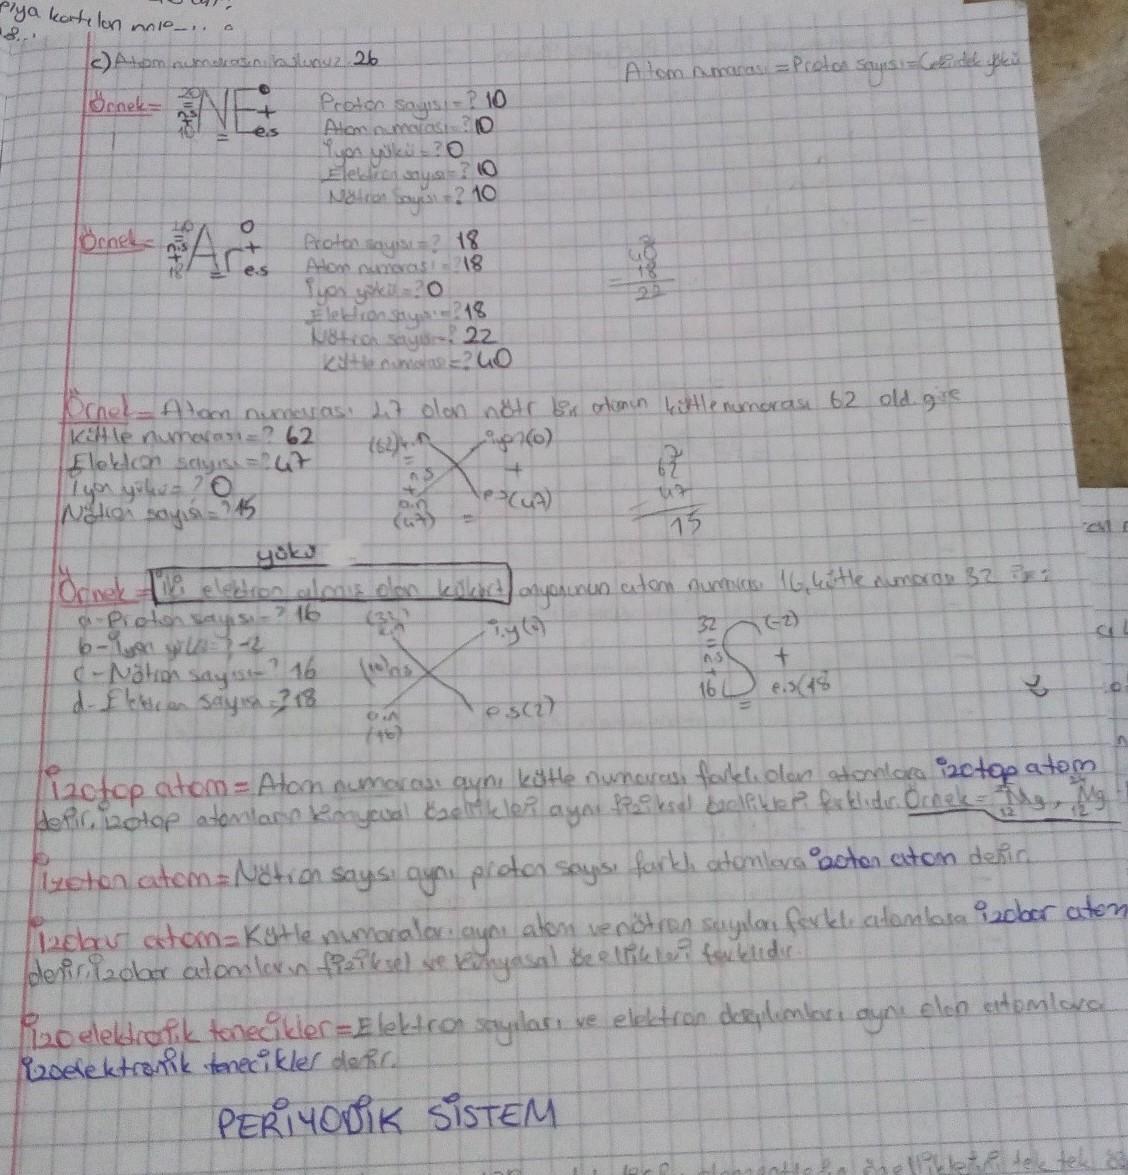 c) Atom numarasını bulunuz 26
Atom numarası = Proton sayısı = Çekirdek yükü
Örnek = 20 = n.s + 10 NE 0 + e.s
Proton sayısı = ? 10
Atom numarası = ? 10
İyon yükü = ? 0
Elektron sayısı = ? 10
Nötron sayısı = ? 10
Örnek = 40 = n.s + 18 Ar 0 + e.s
Proton sayısı = ? 18
Atom numarası = ? 18
İyon yükü = ? 0
Elektron sayısı = ? 18
Nötron sayısı = ? 22
Kütle numarası = ? 40
40
18
22
Örnek = Atom numarası 47 olan nötr bir atomun kütle numarası 62 old. göre
Kütle numarası = ? 62
Elektron sayısı = ? 47
İyon yükü = ? 0
Nötron sayısı = ? 15
(62) k.n
=
n.s
+
a.n
(47) =
iyon (0)
+
e.s (47)
62
47
15
yükü
Örnek = İki elektron almış olan kükürt anyonunun atom numarası 16, kütle numarası 32 ise;
a - Proton sayısı = ? 16
b - İyon yükü = ? -2
c - Nötron sayısı = ? 16
d - Elektron sayısı = ? 18
(32)
k.n
i.y (2)
(16) n.s
a.n
(16)
e.s (2)
32 (-2)
=
n.s S +
16 = e.s (18
izotop atom = Atom numarası aynı kütle numarası farklı olan atomlara izotop atom
denir. izotop atomların kimyasal özellikleri aynı fiziksel özellikleri farklıdır. Örnek = 12 Mg, 24 12 Mg
izoton atom = Nötron sayısı aynı proton sayısı farklı atomlara izoton atom denir.
izobar atom = Kütle numaraları aynı atom ve nötron sayıları farklı atomlara izobar atom
denir. izobar atomların fiziksel ve kimyasal özellikleri farklıdır.
izoelektrofik tanecikler = Elektron sayıları ve elektron dizilimleri aynı olan atomlara
izoelektronik tanecikler denir.
PERİYODİK SİSTEM